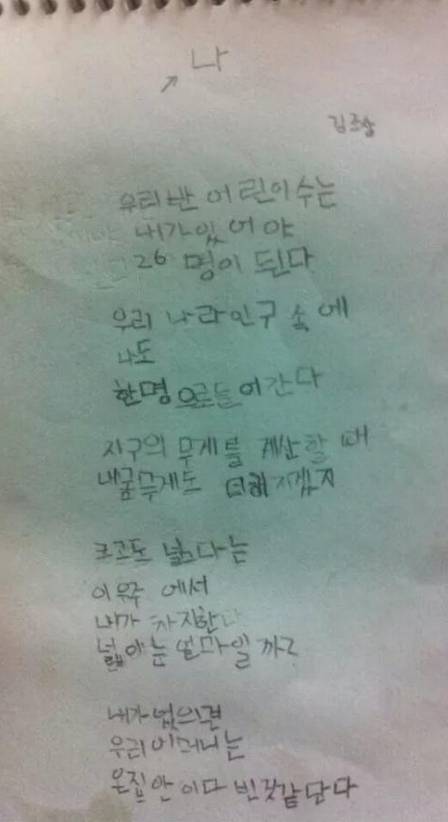 나
우리반 어린이수는
내가있어야
26 명이 된다
우리 나라인구 속에
나도
한명으로들어간다
지구의 무게를 계산할 때
내몸무게도 더해지겠지
크고도 넓다는
이 우주 에서
내가 차지한
넓이는 얼마일 까?
내가없으면
우리어머니는
온집안 이다 빈것같단다